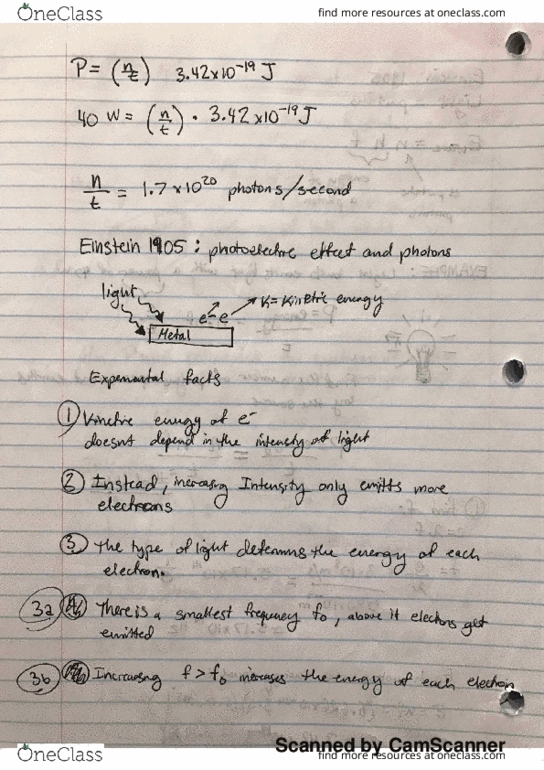 OneClass
find more resources at oneclass.com
P = (n/t) 3.42x10⁻¹⁹ J
40 W = (n/t) · 3.42x10⁻¹⁹ J
n/t = 1.7 x 10²⁰ photons/second
Einstein 1905: photoelectric effect and photons
light
K = Kinetic energy
e⁻ e
Metal
Expemental facts
① Kinetic energy of e⁻
doesnt depend in the intensity of light
② Instead, increasing Intensity only emitts more
electrons
③ The type of light determins the energy of each
electron.
3a There is a smallest frequency fo, above it electrons get
emitted
3b Increasing f > fo increases the energy of each electron
Scanned by CamScanner
OneClass
find more resources at oneclass.com